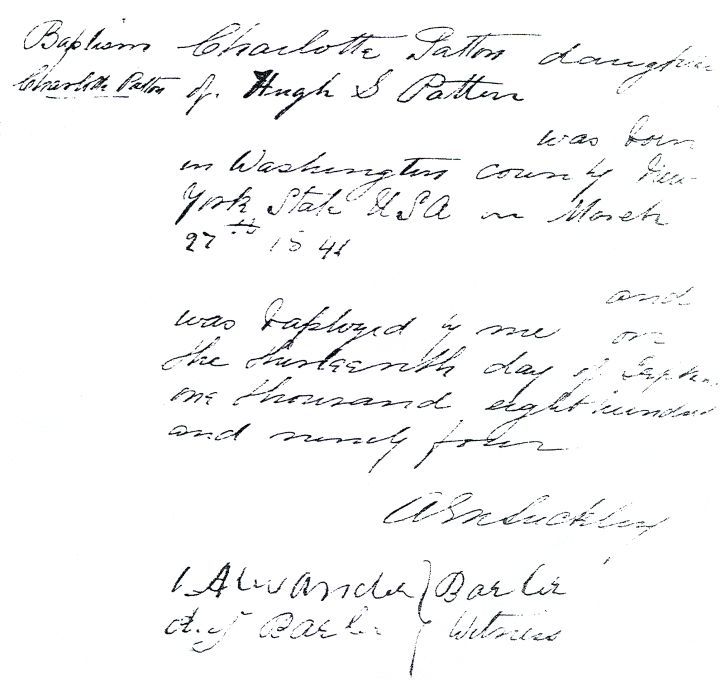 Baptism Charlotte Patton daughter
Charlotte Patton of Hugh S Patten
was born
in Washington county New
York State USA on March
27th 1841
and
was baptized by me on
the thirteenth day of Septem
one thousand eight hundred
and ninety four
1 Alexander } Barler
} Witness